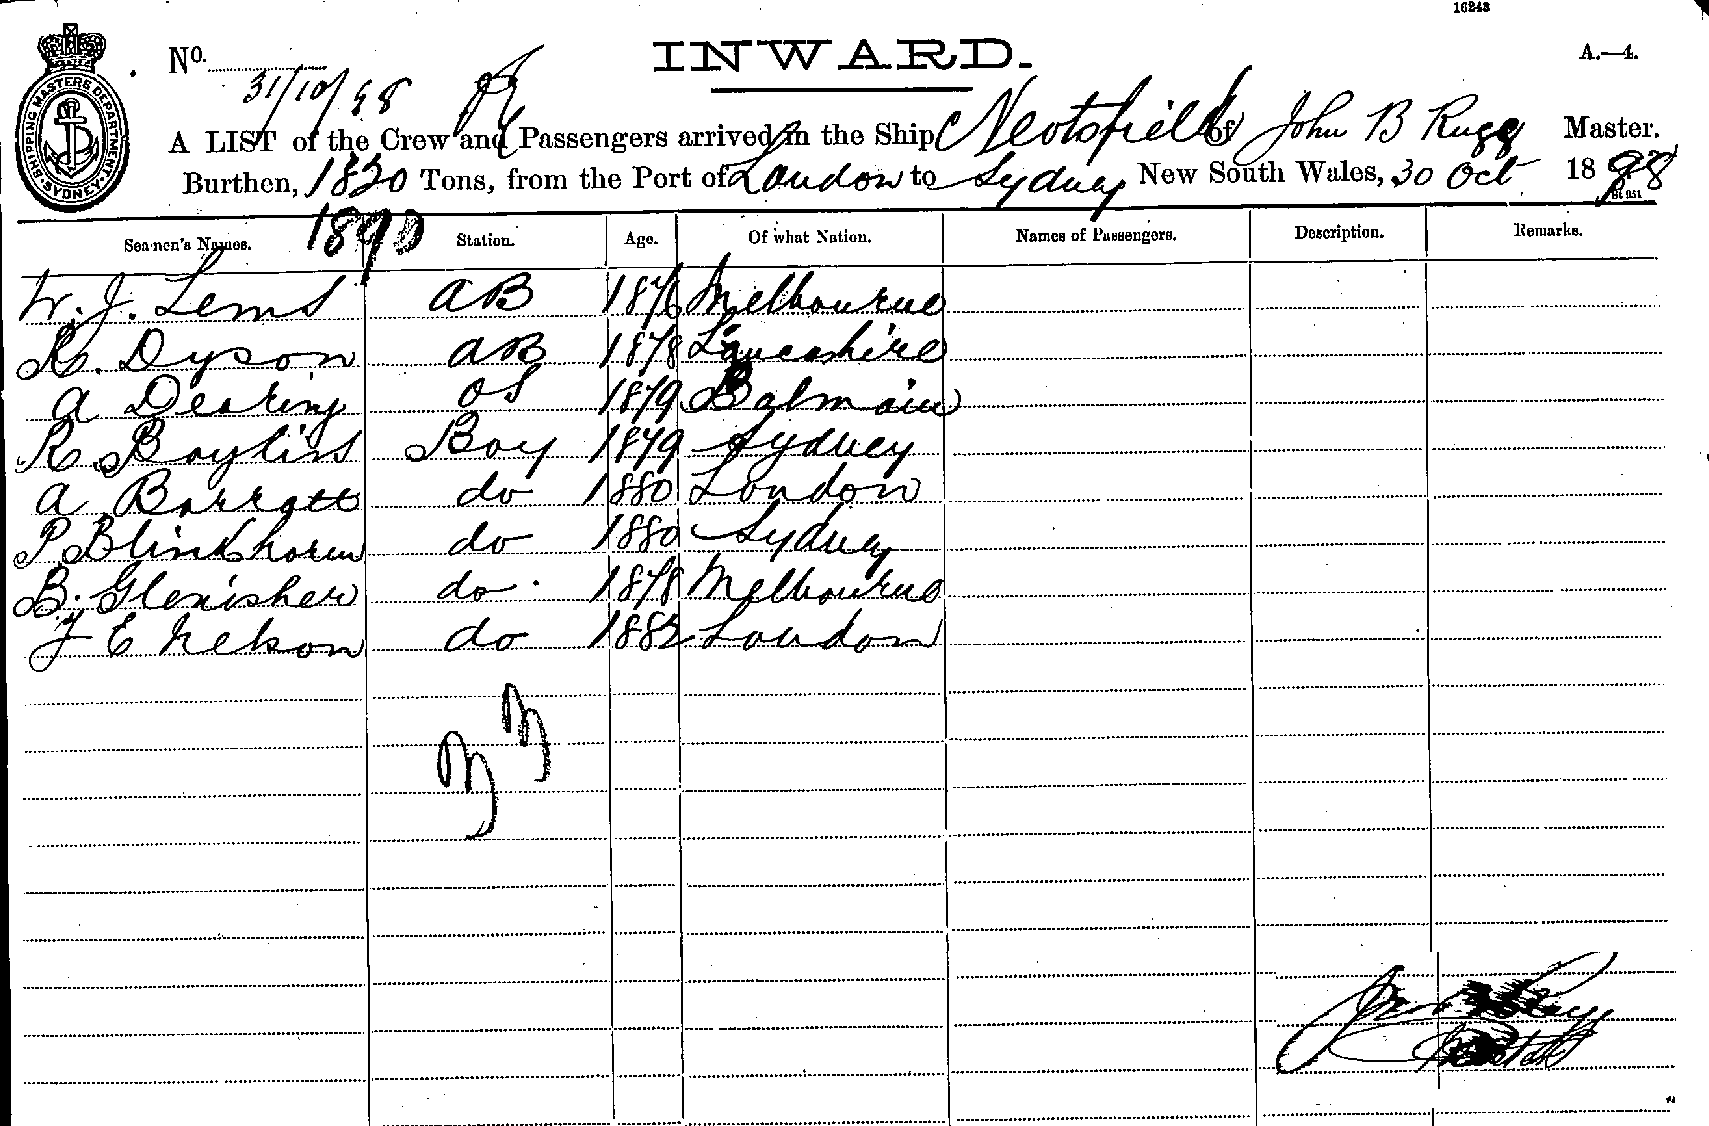 16243
No. 31/10/98
INWARD.
A.—4.
SHIPPING MASTERS DEPARTMENT SYDNEY
A LIST of the Crew and Passengers arrived in the Ship Neotsfield of John B Rugg Master.
Burthen, 1820 Tons, from the Port of London to Sydney New South Wales, 30 Oct 1898
1890
Seamen's Names. Station. Age. Of what Nation. Names of Passengers. Description. Remarks.
W. J. Lems AB 1876 Melbourne
R. Dyson AB 1878 Lancashire
A Dearing OS 1879 Balmain
R Bayliss Boy 1879 Sydney
A Barratt do 1880 London
P Blinkhorn do 1880 Sydney
B. Glenisher do 1878 Melbourne
J E Nelson do 1882 London